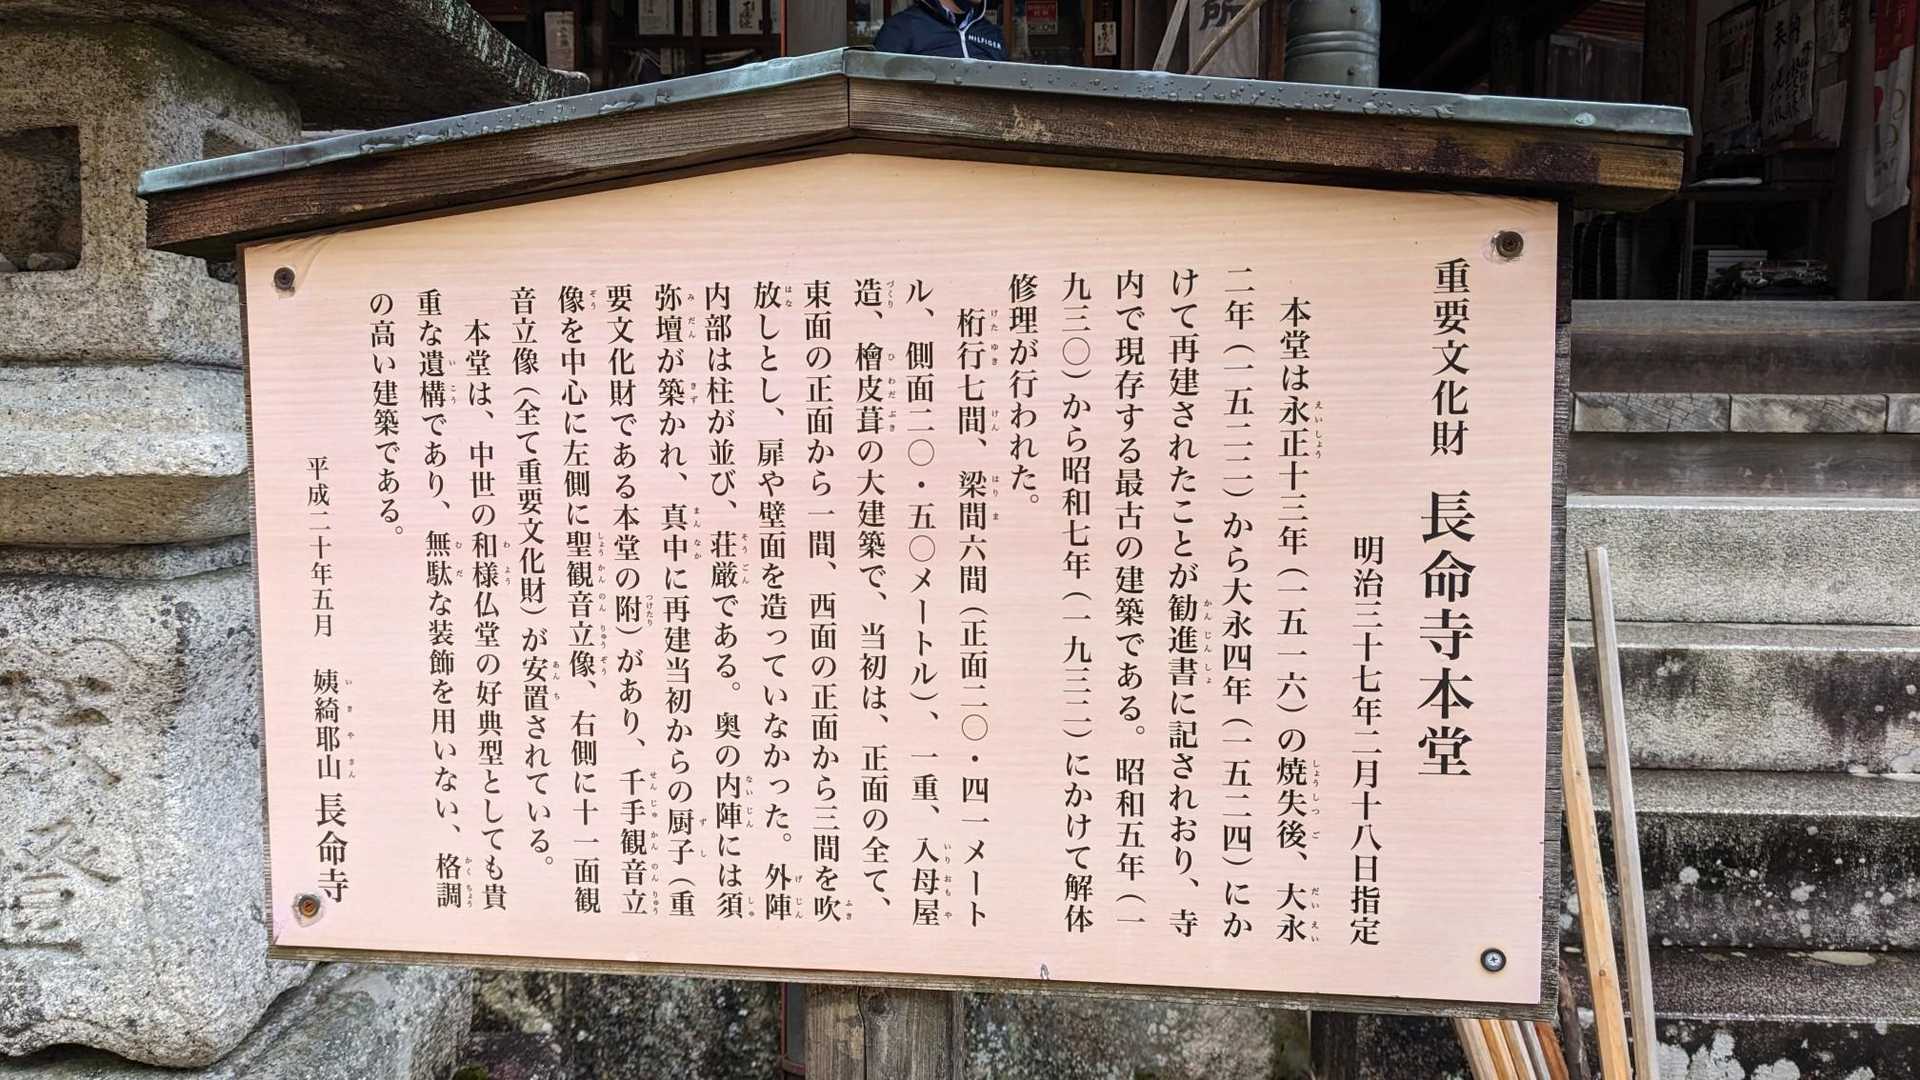 重要文化財　長命寺本堂
明治三十七年二月十八日指定
本堂は永正十三年（一五一六）の焼失後、大永
二年（一五二二）から大永四年（一五二四）にか
けて再建されたことが勧進書に記されおり、寺
内で現存する最古の建築である。昭和五年（一
九三〇）から昭和七年（一九三二）にかけて解体
修理が行われた。
桁行七間、梁間六間（正面二〇・四一メート
ル、側面二〇・五〇メートル）、一重、入母屋
造、檜皮葺の大建築で、当初は、正面の全て、
東面の正面から一間、西面の正面から三間を吹
放しとし、扉や壁面を造っていなかった。外陣
内部は柱が並び、荘厳である。奥の内陣には須
弥壇が築かれ、真中に再建当初からの厨子（重
要文化財である本堂の附）があり、千手観音立
像を中心に左側に聖観音立像、右側に十一面観
音立像（全て重要文化財）が安置されている。
本堂は、中世の和様仏堂の好典型としても貴
重な遺構であり、無駄な装飾を用いない、格調
の高い建築である。
平成二十年五月　姨綺耶山 長命寺
HILFIGER
所